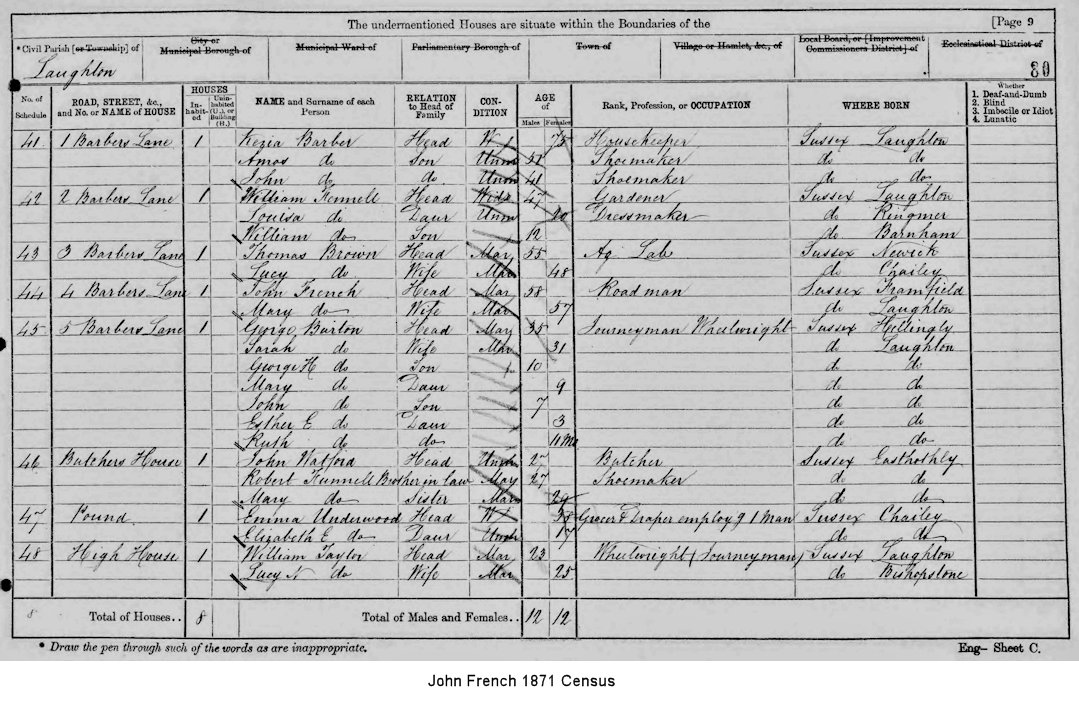 The undermentioned Houses are situate within the Boundaries of the [Page 9
*Civil Parish [or Township] of City or Municipal Borough of Municipal Ward of Parliamentary Borough of Town of Village or Hamlet, &c., of Local Board, or [Improvement Commissioners District] of Ecclesiastical District of
Laughton 80
No. of Schedule ROAD, STREET, &c., and No. or NAME of HOUSE HOUSES Inhabited Uninhabited (U.), or Building (B.) NAME and Surname of each Person RELATION to Head of Family CONDITION AGE of Males Females Rank, Profession, or OCCUPATION WHERE BORN Whether 1. Deaf-and-Dumb 2. Blind 3. Imbecile or Idiot 4. Lunatic
41 1 Barbers Lane 1 Kezia Barber Head W 75 Housekeeper Sussex Laughton
Amos do Son Unm 51 Shoemaker do do
John do do Unm 41 Shoemaker do do
42 2 Barbers Lane 1 William Head 47 Gardener Sussex Laughton
Louisa do Daur Unm 20 Dressmaker do Ringmer
William do Son 12 do Barnham
43 3 Barbers Lane 1 Thomas Brown Head Mar 55 Ag Lab Sussex Newick
Lucy do Wife Mar 48 do Chailey
44 4 Barbers Lane 1 John French Head Mar 58 Roadman Sussex Framfield
Mary do Wife Mar 57 do Laughton
45 5 Barbers Lane 1 George Burton Head Mar 35 Journeyman Wheelwright Sussex Hellingly
Sarah do Wife Mar 31 do Laughton
George H do Son 10 do do
Mary do Daur 9 do do
John do Son 7 do do
Esther E do Daur 3 do do
Ruth do do 11 Mo do do
46 Butchers House 1 John Watford Head Unm 27 Butcher Sussex Easthothly
Robert Funnell Brother in law Mar 27 Shoemaker do do
Mary do Sister Mar 29 do do
47 Pound 1 Emma Underwood Head W Grocer & Draper employg 1 Man Sussex Chailey
Elizabeth E do Daur Unm 17 do do
48 High House 1 William Taylor Head Mar 23 Wheelwright (Journeyman) Sussex Laughton
Lucy N do Wife Mar 25 do Bishopstone
8 Total of Houses.. 8 Total of Males and Females.. 12 12
* Draw the pen through such of the words as are inappropriate. Eng- Sheet C.
John French 1871 Census